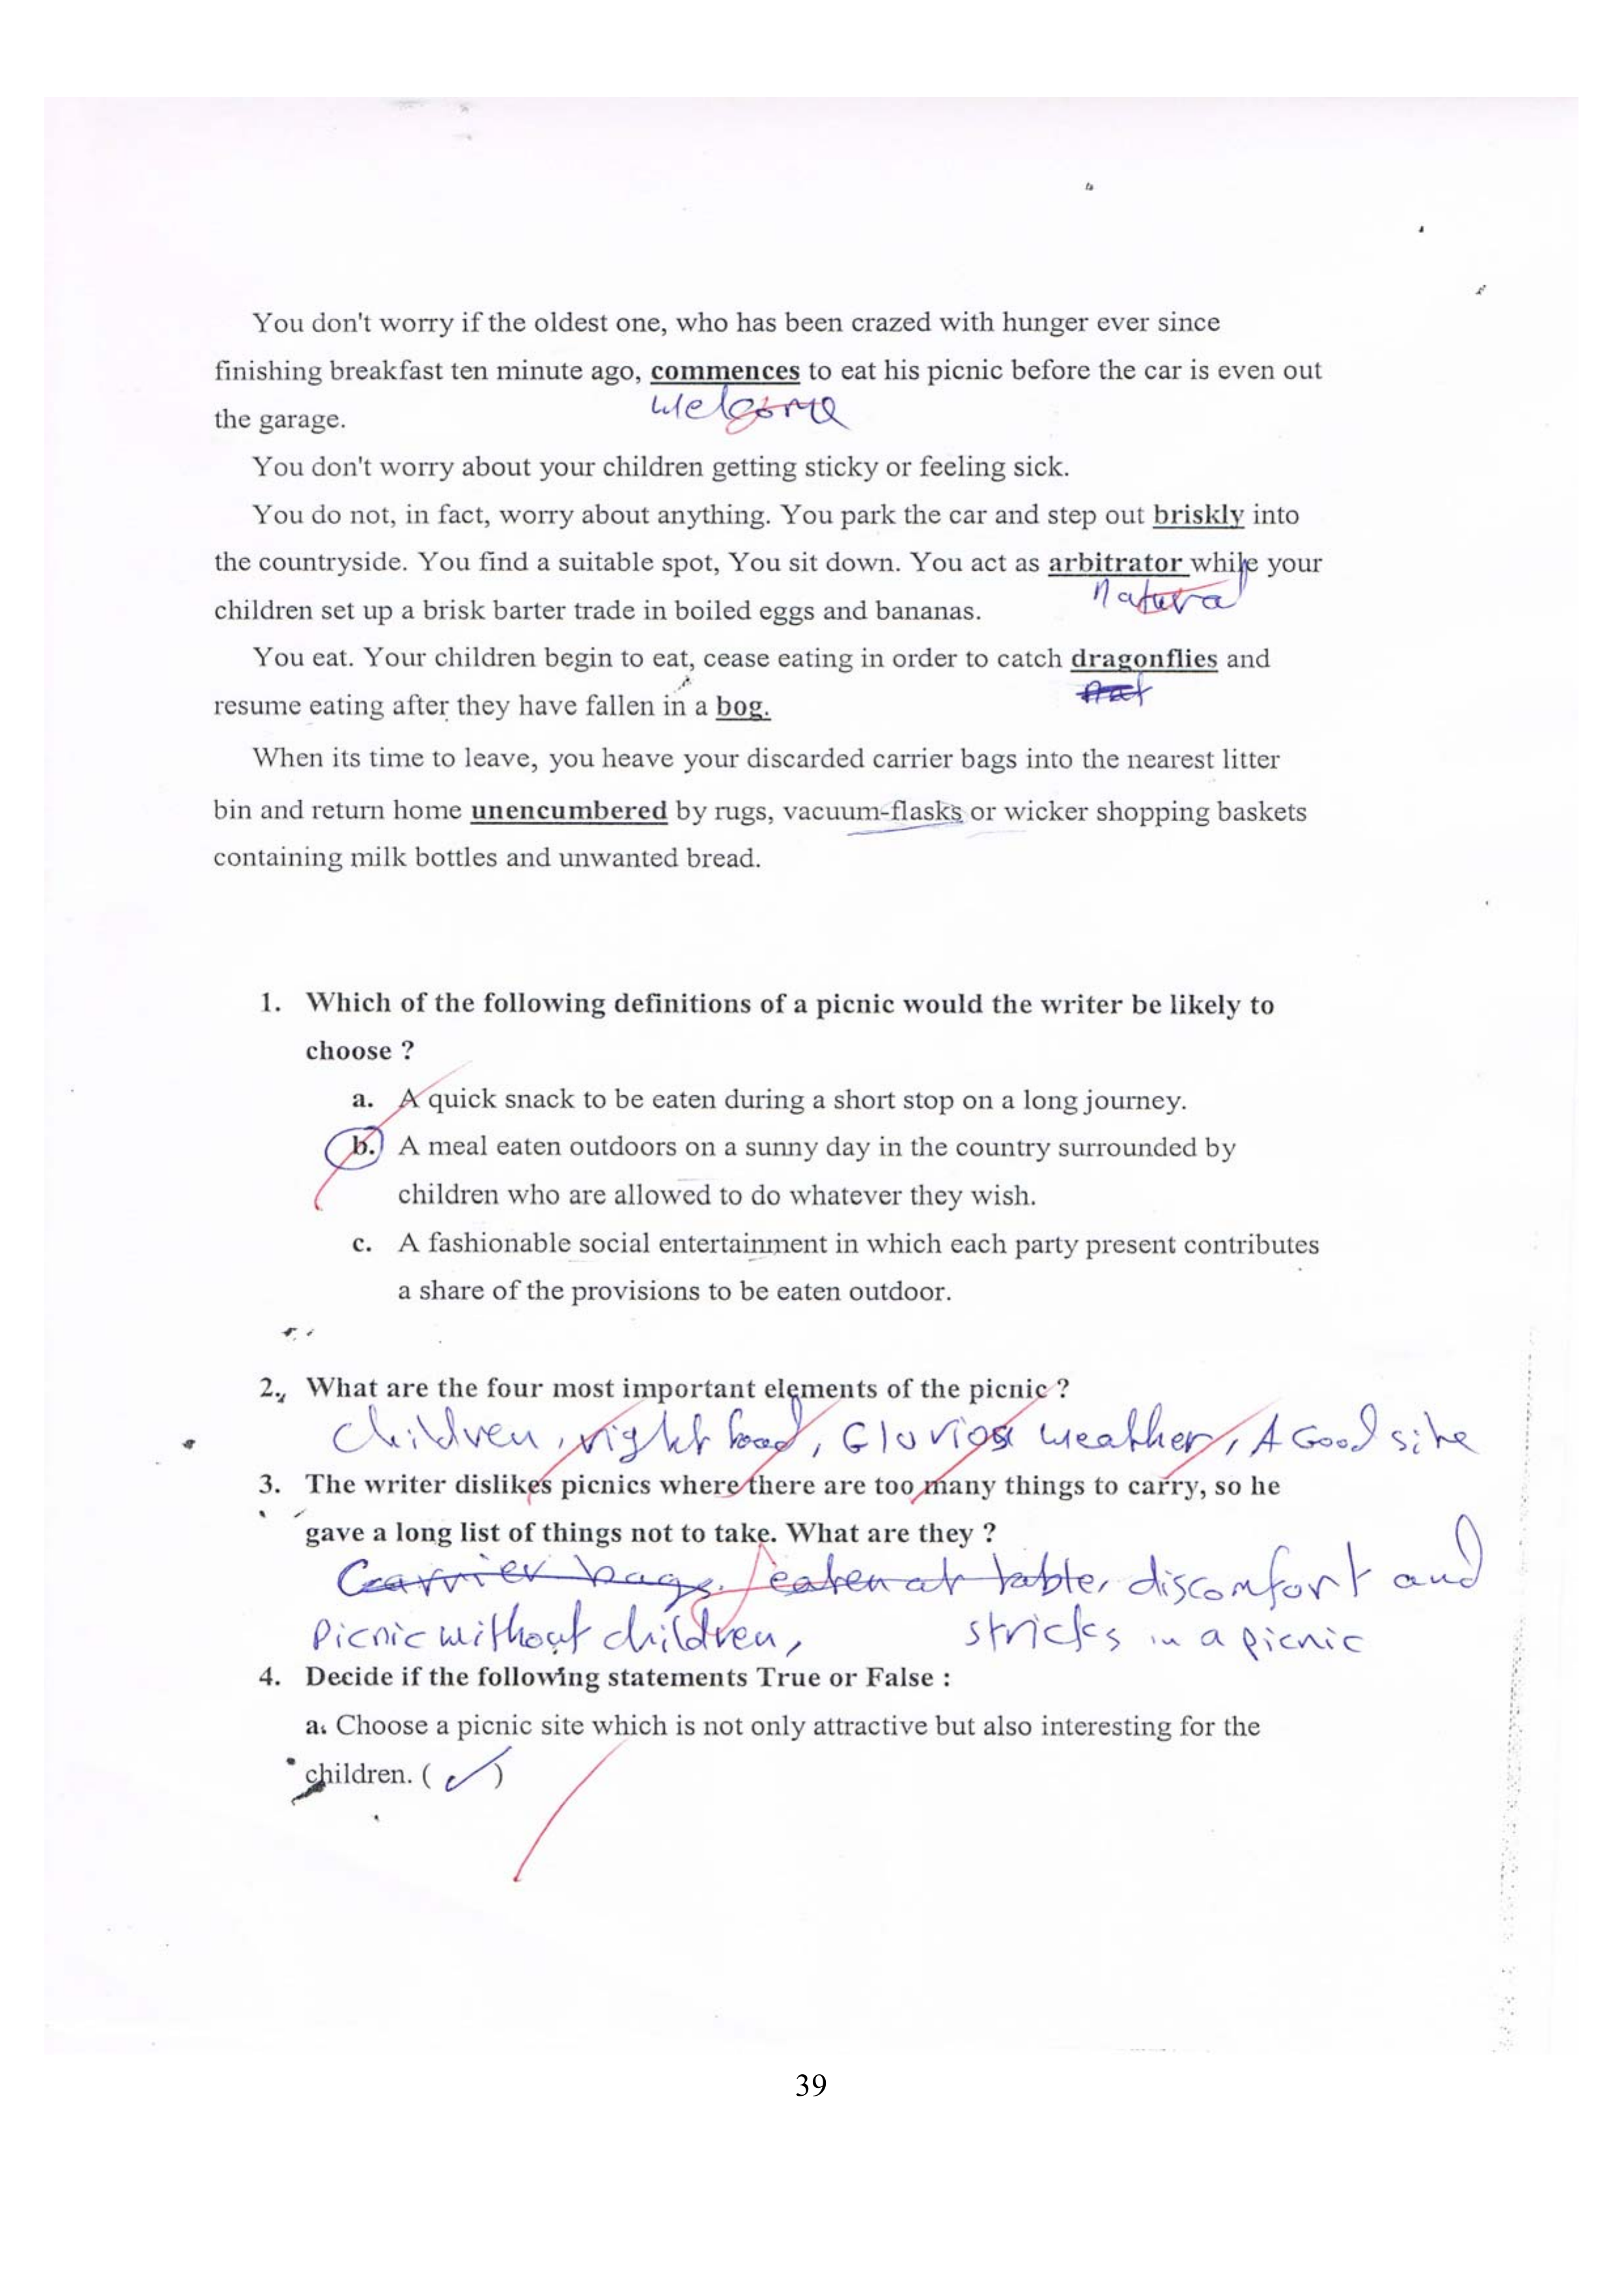 You don't worry if the oldest one, who has been crazed with hunger ever since
finishing breakfast ten minute ago, commences to eat his picnic before the car is even out
welcome
the garage.
You don't worry about your children getting sticky or feeling sick.
You do not, in fact, worry about anything. You park the car and step out briskly into
the countryside. You find a suitable spot, You sit down. You act as arbitrator while your
natural
children set up a brisk barter trade in boiled eggs and bananas.
You eat. Your children begin to eat, cease eating in order to catch dragonflies and
resume eating after they have fallen in a bog.
When its time to leave, you heave your discarded carrier bags into the nearest litter
bin and return home unencumbered by rugs, vacuum-flasks or wicker shopping baskets
containing milk bottles and unwanted bread.
1. Which of the following definitions of a picnic would the writer be likely to
choose ?
a. A quick snack to be eaten during a short stop on a long journey.
b. A meal eaten outdoors on a sunny day in the country surrounded by
children who are allowed to do whatever they wish.
c. A fashionable social entertainment in which each party present contributes
a share of the provisions to be eaten outdoor.
2. What are the four most important elements of the picnic ?
children, right food, Glorios weather, A Good site
3. The writer dislikes picnics where there are too many things to carry, so he
gave a long list of things not to take. What are they ?
Carrier bags. eaten at table, discomfort and
Picnic without children, stricks in a picnic
4. Decide if the following statements True or False :
a. Choose a picnic site which is not only attractive but also interesting for the
children. ( ✓ )
39